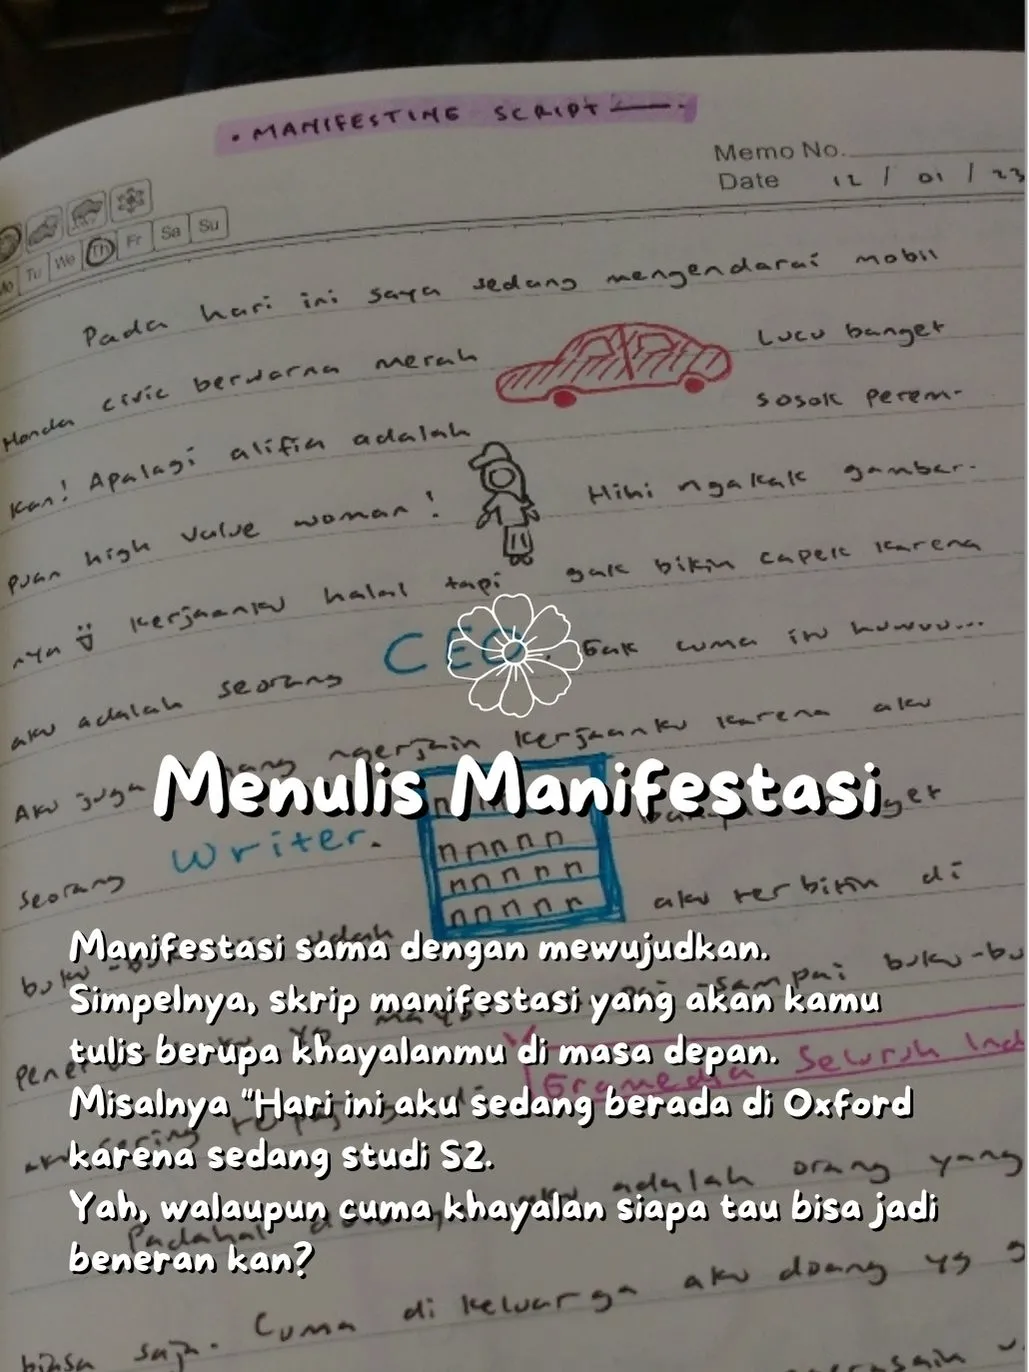 • MANIFESTING SCRIPT
Memo No.
Date 12 / 01 / 23
Mo Tu We Th Fr Sa Su
Pada hari ini saya sedang mengendarai mobil
Honda civic berwarna merah Lucu banget
Kan! Apalagi alifia adalah sosok perem-
puan high value woman! Hihi ngakak gambar-
nya kerjaanku halal tapi gak bikin capek karena
aku adalah seorang CEO. Gak cuma itu huwuu...
Aku juga ngerjain kerjaanku karena aku
Menulis Manifestasi
seorang Writer.
nnnnn
nnnnn
nnnnn
aku terbitin di
Manifestasi sama dengan mewujudkan.
buku-bu
Simpelnya, skrip manifestasi yang akan kamu
tulis berupa khayalanmu di masa depan.
Gramedia Seluruh Ind
Misalnya "Hari ini aku sedang berada di Oxford
karena sedang studi S2.
adalah orang yang
Yah, walaupun cuma khayalan siapa tau bisa jadi
Padahal
beneran kan?
biasa saja. Cuma di keluarga aku doang yg